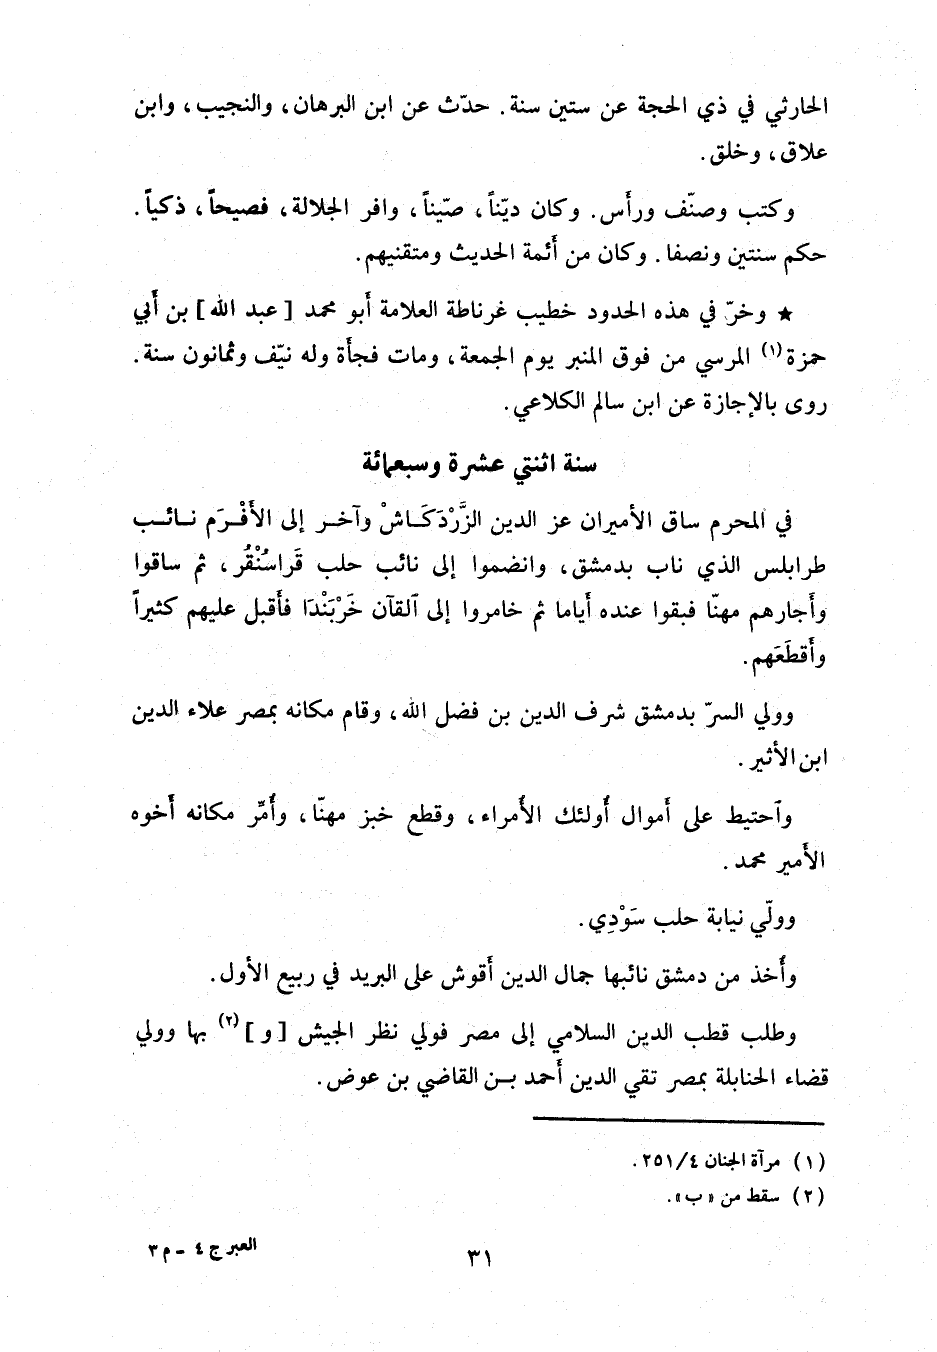 الحارثي في ذي الحجة عن ستين سنة. حدّث عن ابن البرهان، والنجيب، وابن
علاق، وخلق.
وكتب وصنّف ورأس. وكان ديّناً، صيّناً، وافر الجلالة، فصيحاً، ذكياً.
حكم سنتين ونصفا. وكان من أئمة الحديث ومتقنيهم.
★ وخرّ في هذه الحدود خطيب غرناطة العلامة أبو محمد [عبد الله] بن أبي
حمزة (١) المرسي من فوق المنبر يوم الجمعة، ومات فجأة وله نيّف وثمانون سنة.
روى بالإجازة عن ابن سالم الكلاعي.
سنة اثنتي عشرة وسبعمائة
في المحرم ساق الأميران عز الدين الزَّرْدَكَـاشْ وآخـر إلى الأَفْـرَم نـائـب
طرابلس الذي ناب بدمشق، وانضموا إلى نائب حلب قَراسُنْقُر، ثم ساقوا
وأجارهم مهنّا فبقوا عنده أياما ثم خامروا إلى ٱلقآن خَرْبَنْدَا فأقبل عليهم كثيراً
وأقطَعَهم.
وولي السرّ بدمشق شرف الدين بن فضل الله، وقام مكانه بمصر علاء الدين
ابن الأثير.
وٱحتيط على أموال أُولئك الأُمراء، وقطع خبز مهنّا، وأُمِّر مكانه أخوه
الأمير محمد.
وولّي نيابة حلب سَوْدِي.
وأُخذ من دمشق نائبها جمال الدين أقوش على البريد في ربيع الأول.
وطلب قطب الدين السلامي إلى مصر فولي نظر الجيش [و] (٢) بها وولي
قضاء الحنابلة بمصر تقي الدين أحمد بـن القاضي بن عوض.
(١) مرآة الجنان ٢٥١/٤.
(٢) سقط من «ب».
العبر ج ٤ - م ٣
٣١